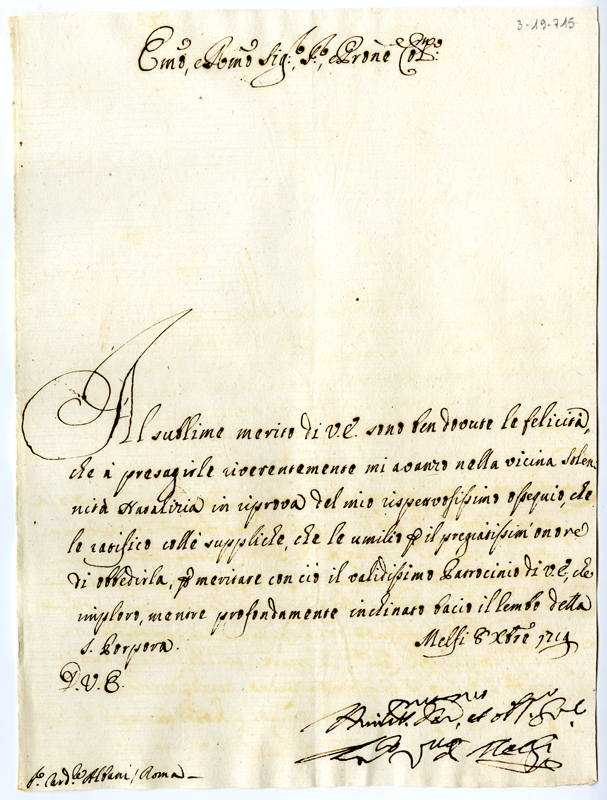 3-19-715
Emo, e Rmo Sig.r, P.re, e Prone Colmo:
Al sublime merito di V.E. sono ben dovute le felicità,
che à presagirle riverentemente mi avanzo nella vicina solen-
nità Natalizia in riprova del mio rispettosissimo ossequio, che
le ratifico colle suppliche, che le umilio p il pregiatissim'onore
di obbedirla, p meritare con ciò il validissimo Patrocinio di V.E., che
imploro, mentre profondamente inclinato bacio il lembo della
S. Porpora.
Melfi 8 Xbre 1719
D. V. E.
et
Melfi
Card.le Albani / Roma